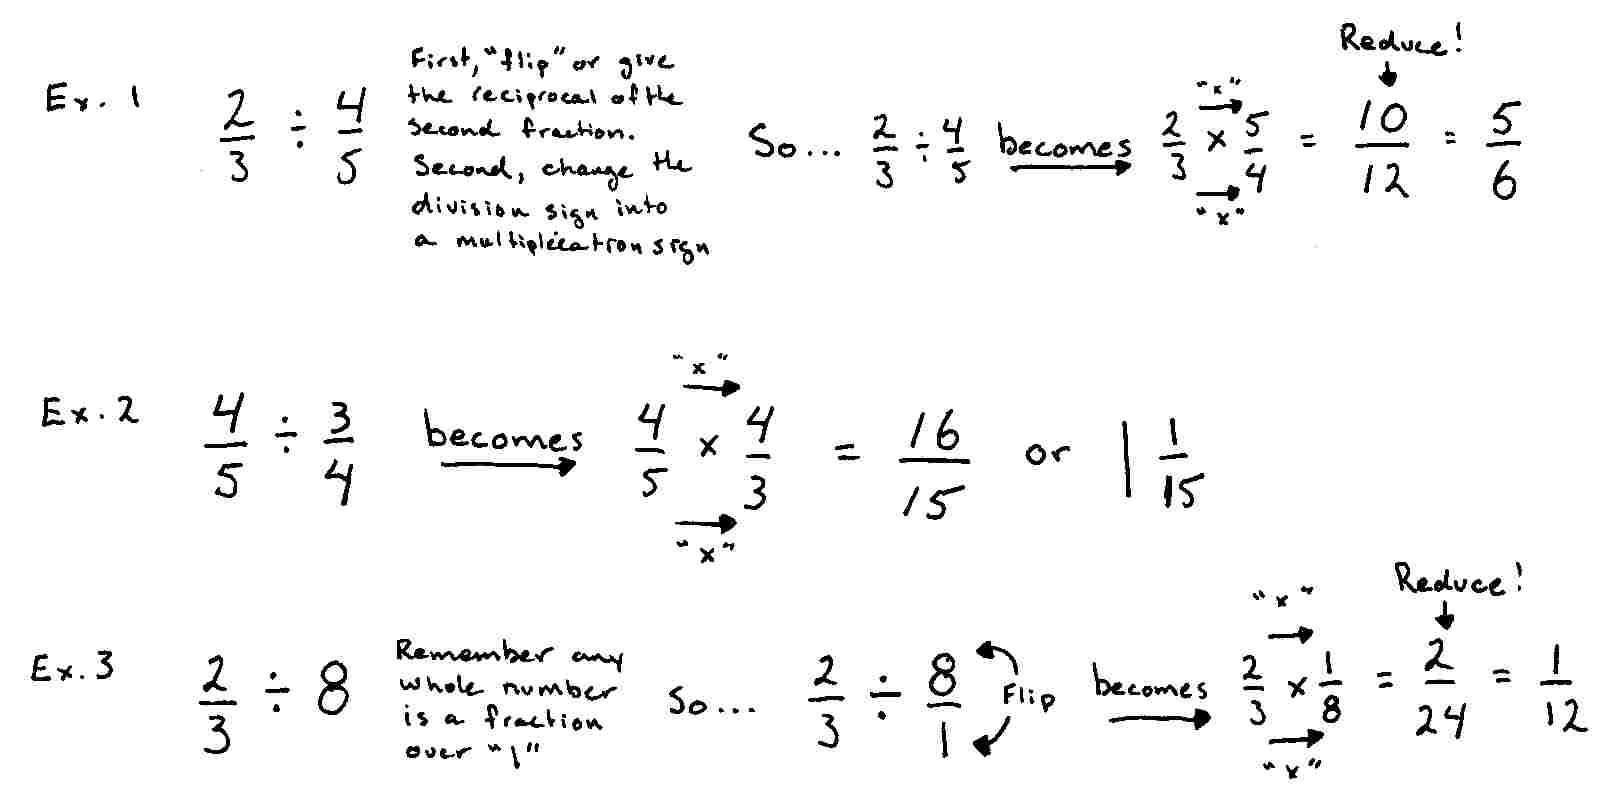 Ex. 1 2/3 ÷ 4/5
First, "flip" or give
the reciprocal of the
second fraction.
Second, change the
division sign into
a multiplication sign
So... 2/3 ÷ 4/5 becomes 2/3 × 5/4 = 10/12 = 5/6
"x"
"x"
Reduce!
Ex. 2 4/5 ÷ 3/4 becomes 4/5 × 4/3 = 16/15 or 1 1/15
"x"
"x"
Ex. 3 2/3 ÷ 8
Remember any
whole number
is a fraction
over "1"
So... 2/3 ÷ 8/1 Flip becomes 2/3 × 1/8 = 2/24 = 1/12
"x"
"x"
Reduce!